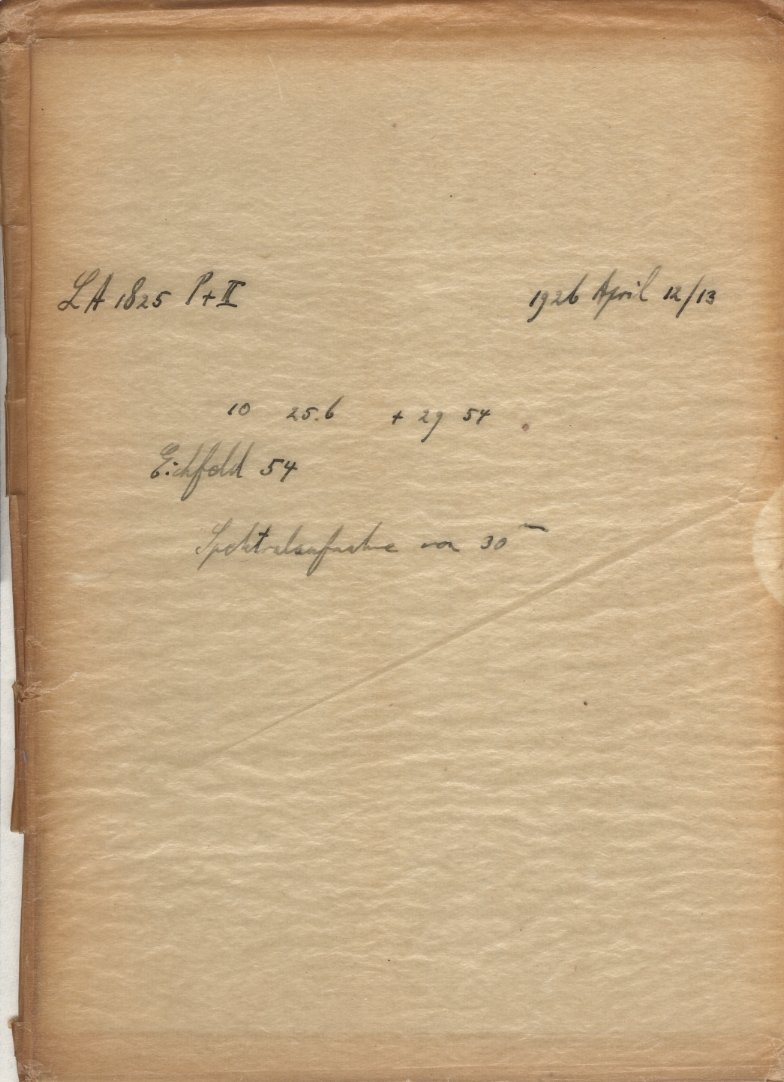 LA 1825 P+II 1926 April 12/13
10 25.6 + 29 54
Eichfeld 54
Spektralaufnahme von 30ᵐ